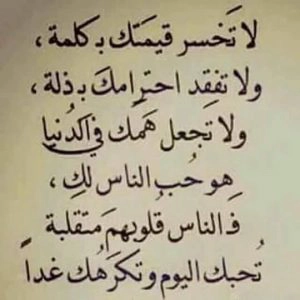 لا تَخسر قيمَتك بـكلمة ،
ولا تفقِد احترامكَ بـذلة ،
ولا تَجعل هَمك في الدُنيا
هو حُب الناس لكِ ،
فـ الناس قلوبهم متقلبة
تُحبك اليوم وتكرَهُك غداً